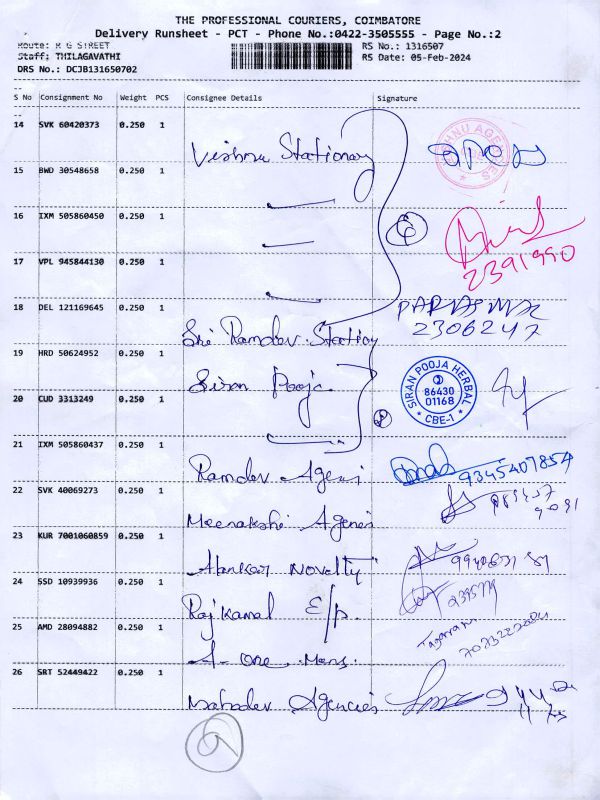 THE PROFESSIONAL COURIERS, COIMBATORE
Delivery Runsheet - PCT - Phone No.:0422-3505555 - Page No.:2
Route: R G STREET
RS No.: 1316507
Staff: THILAGAVATHI
RS Date: 05-Feb-2024
DRS No.: DCJB131650702
S No Consignment No Weight PCS Consignee Details Signature
14 SVK 60420373 0.250 1
Vishnu Stationary
VISHNU AGENCIES
15 BWD 30548658 0.250 1
16 IXM 505860450 0.250 1
17 VPL 945844130 0.250 1
2391990
18 DEL 121169645 0.250 1
2306247
Sri Ramdev Station
19 HRD 50624952 0.250 1
Siran Pooja
SIRAN POOJA HERBAL
86430
01168
* CBE-1 *
20 CUD 3313249 0.250 1
21 IXM 505860437 0.250 1
Ramdev Agenci
9345407854
22 SVK 40069273 0.250 1
Meenakshi Agencies
23 KUR 7001060859 0.250 1
Alankar Novelty
24 SSD 10939936 0.250 1
Rajkamal E/p.
25 AMD 28094882 0.250 1
A- one Mens.
26 SRT 52449422 0.250 1
Mahadev Agencies